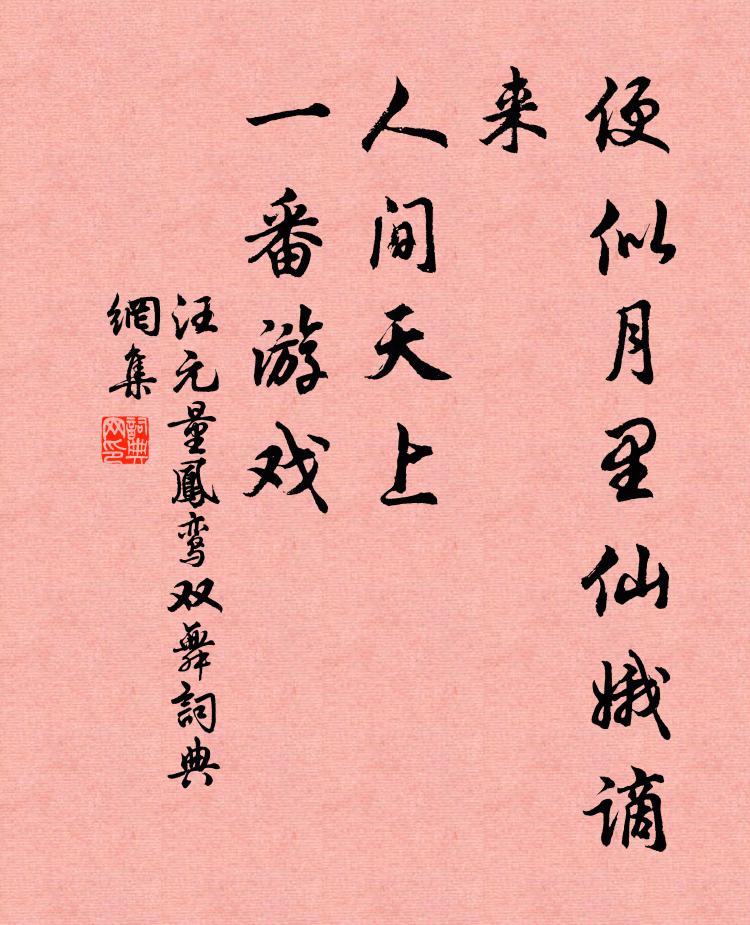 便似月里仙娥谪
来
人间天上
一番游戏
汪元量鳳鸾双舞詞典
網集
詞典
网印